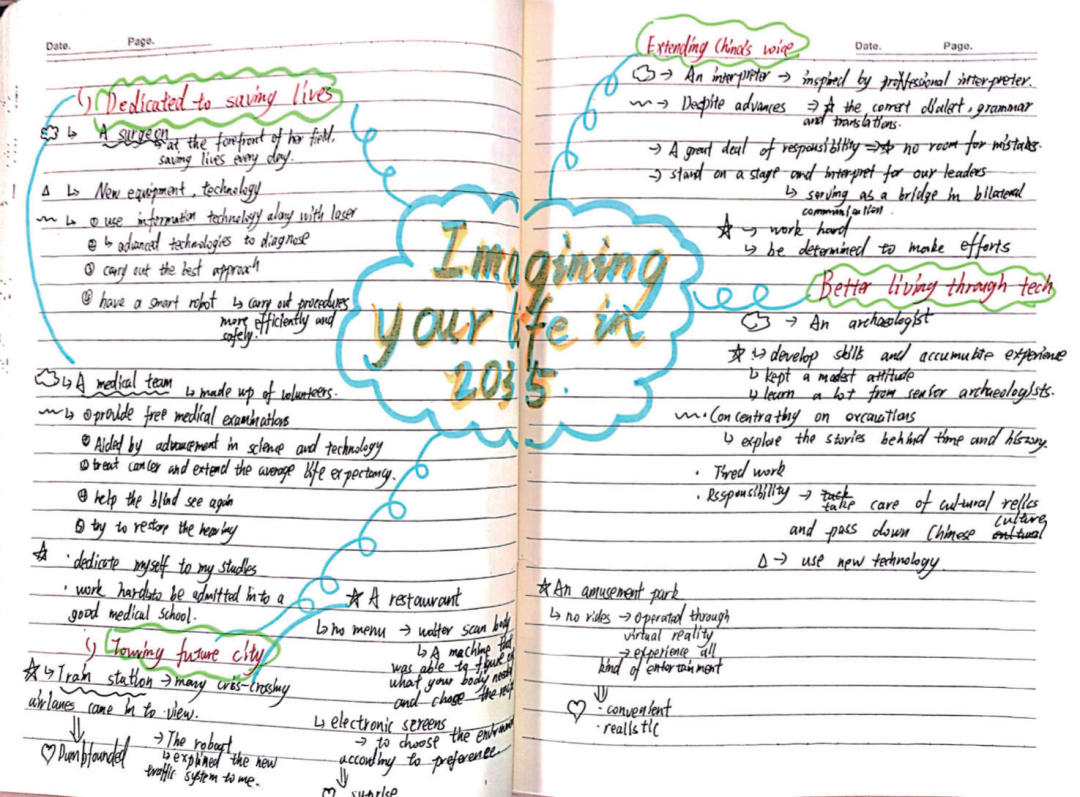 Date.
Page.
() Dedicated to saving lives
↳ A surgeon at the forefront of her field,
saving lives every day.
△ ↳ New equipment, technology
↳ ① use information technology along with laser
② ↳ advanced technologies to diagnose
③ carry out the best approach
④ have a smart robot ↳ carry out procedures
more efficiently and
safely.
↳ A medical team ↳ made up of volunteers.
↳ ① provide free medical examinations
② Aided by advancement in science and technology
③ treat cancer and extend the average life expectancy.
④ help the blind see again
⑤ try to restore the hearing
☆ · dedicate myself to my studies
· work hard to be admitted into a
good medical school.
() Touring future city
☆ ↳ Train station → many criss-crossing
airlanes came in to view.
⇓
♡ Dumbfounded
→ The robot
↳ explined the new
traffic system to me.
☆ A restaurant
↳ no menu → waiter scan body
↳ A machine that
was able to figure
what your body
and chose the
↳ electronic screens
→ to choose the
according to preference
⇓
♡ suprise
Imagining
your life in
2035.
Extending China's voice
Date.
Page.
→ An interpreter → inspired by professional interpreter.
→ Despite advances → ☆ the correct grammar
and translations.
→ A great deal of responsibility → ☆ no room for mistakes.
→ stand on a stage and interpret for our leaders
↳ serving as a bridge in bilateral
communication
☆ → work hard
↳ be determined to make efforts
Better living through tech
→ An archaeologist
☆ ↳ develop skills and accumulate experience
↳ kept a modest attitude
↳ learn a lot from senior archaeologists.
· Concentrathy on excavations
↳ explore the stories behind time and history.
· Tired work
· Responsibility → task
take care of cultural relics
and pass down Chinese culture
cultural
△ → use new technology
☆ An amusement park
↳ no rides → operated through
virtual reality
→ experience all
kind of entertainment
⇓
♡ · convenient
· realistic